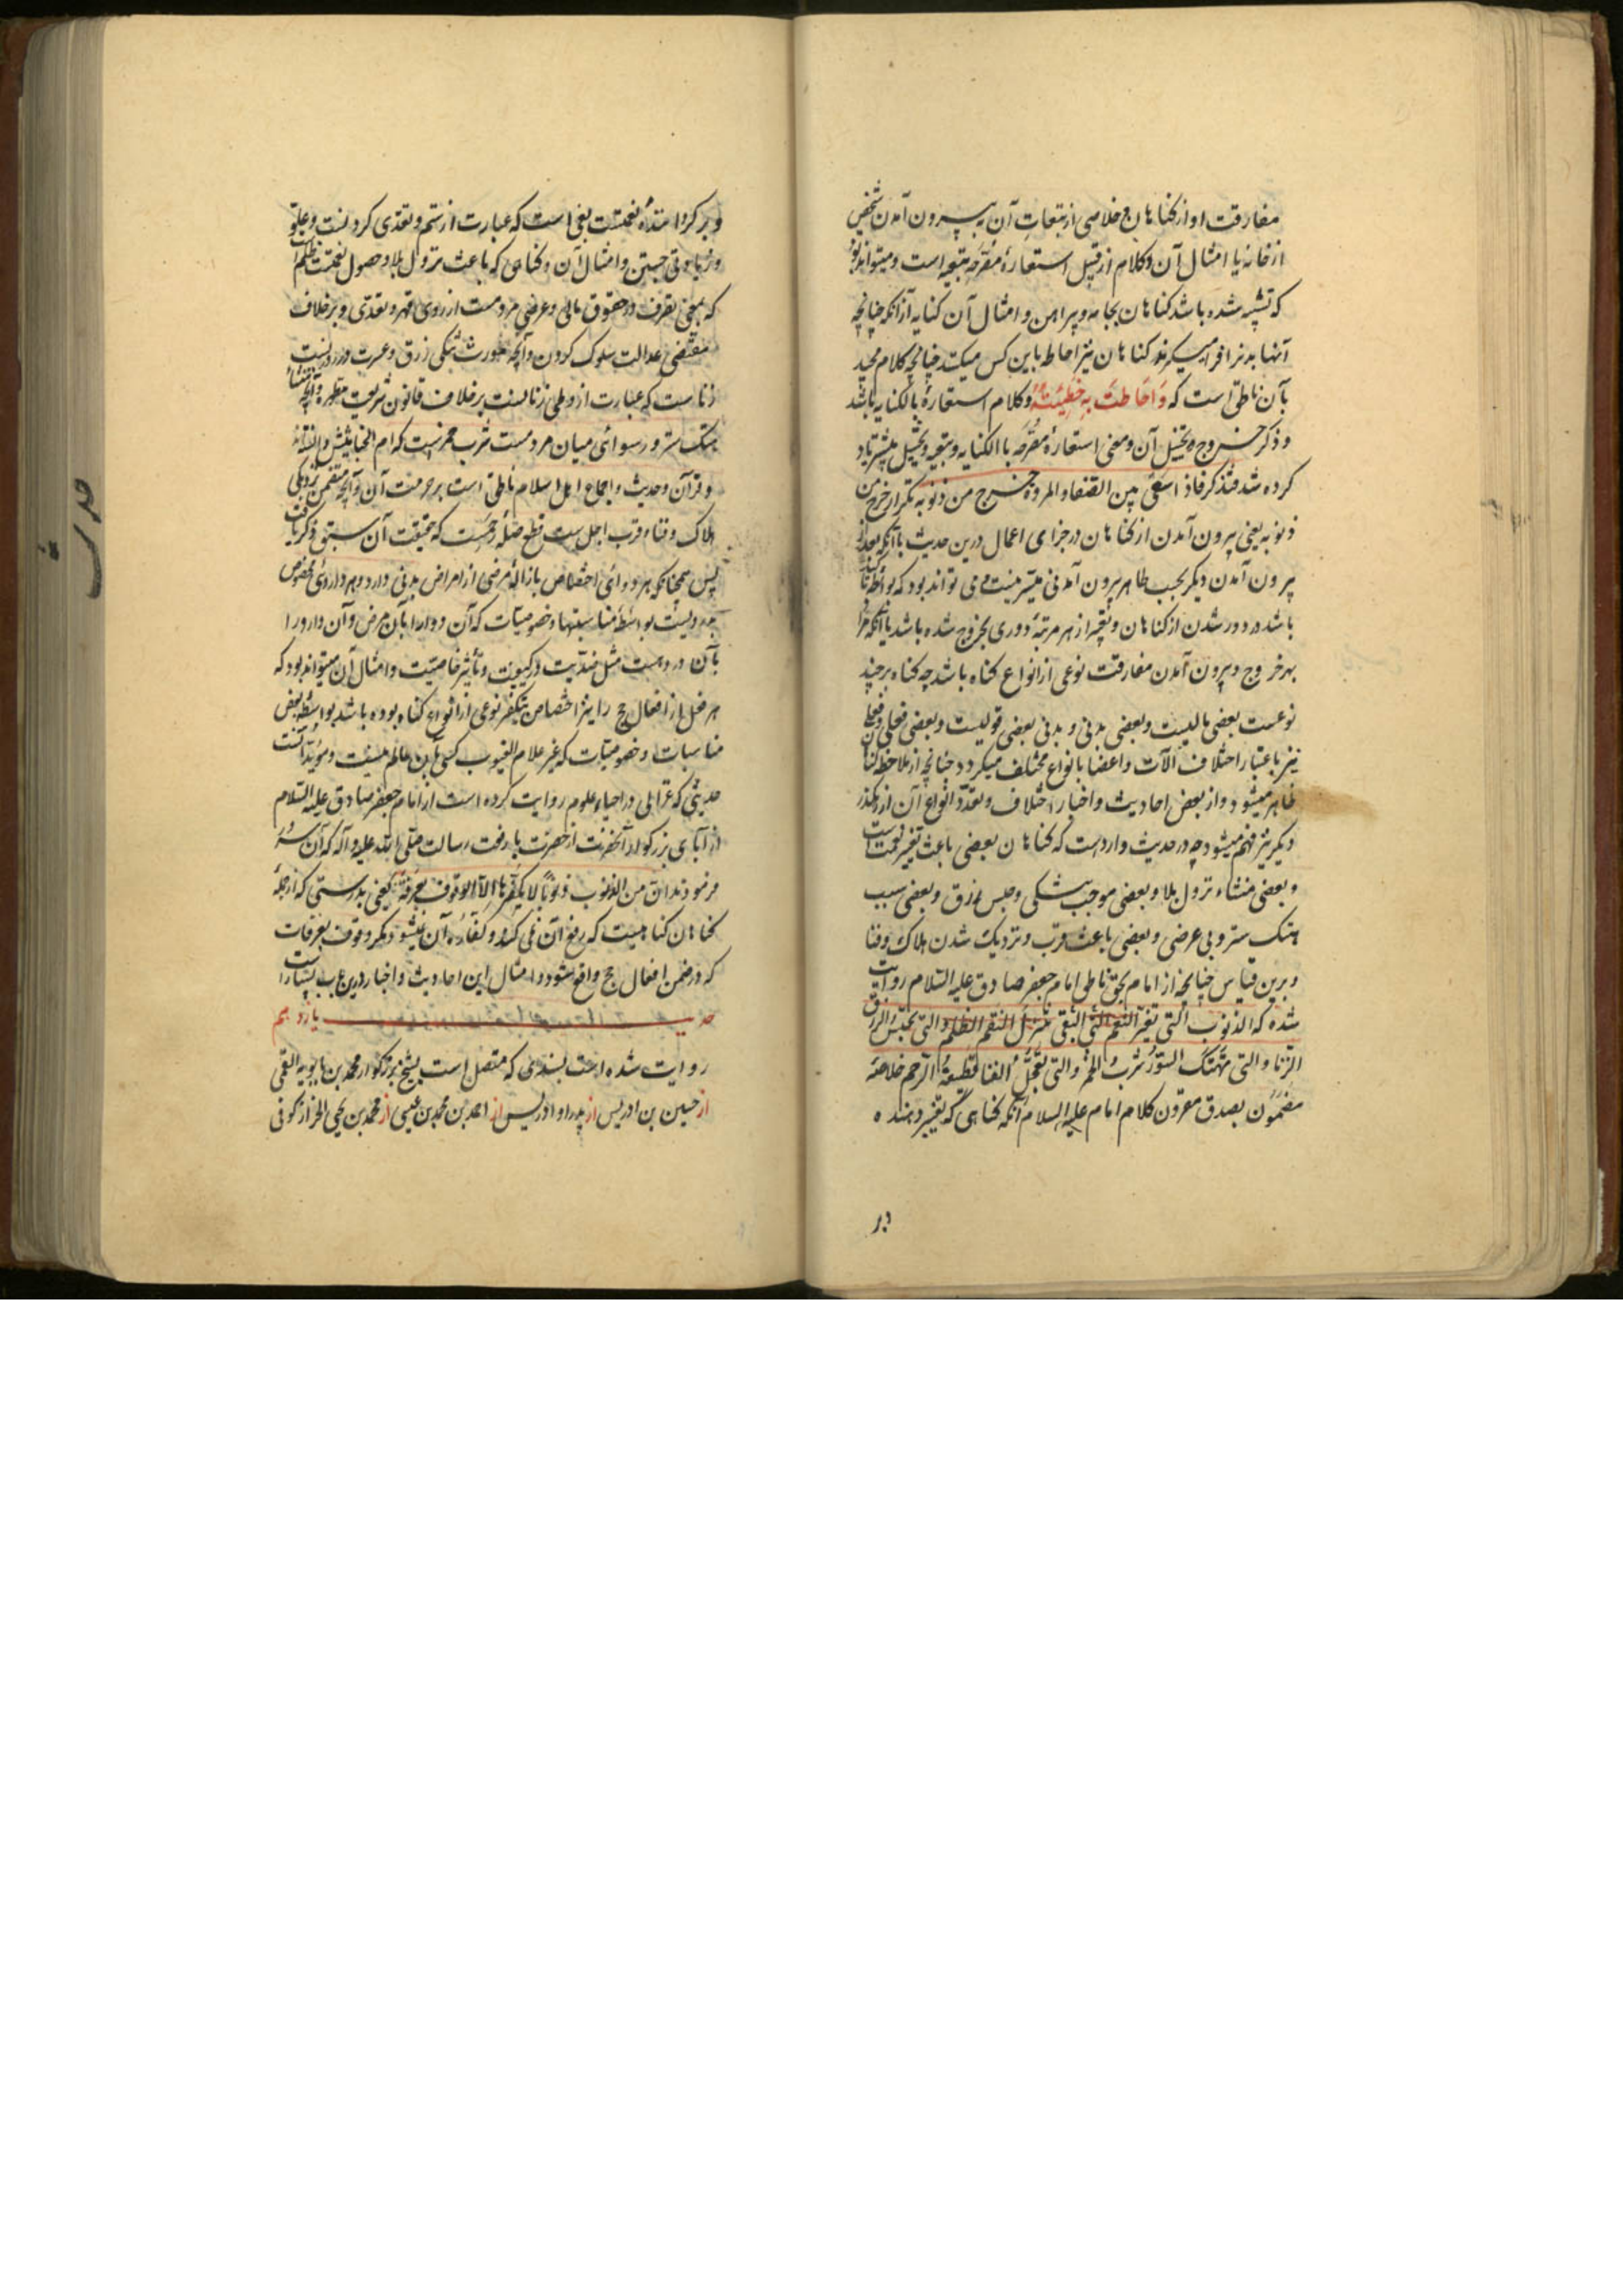 مفارقت او از کناهان و خلاصی از تبعات آن به بیرون آمدن شخص
از خانه یا امثال آن و کلام از قبیل استعارهٔ مصرحه تبعیه است و میتواند بود
که تشبیه شده باشد کناهان بجامه و پیراهن و امثال آن کنایه از آنکه چنانچه
آنها بدنرا فرا میگیرند کناهان نیز احاطه باین کس میکند چنانچه کلام مجید
بآن ناطق است که وَاَحَاطَتْ بِهِ خَطِیئَتُهُ و کلام استعارهٔ بالکنایه باشد
و ذکر خروج تخییل آن و معنی استعارهٔ مصرحه با الکنایه و تبعیه و تخییل پیشتر یاد
کرده شد فتذکر فاذا سعی بین الصفا و المروة خرج من ذنوبه تکرار خرج من
ذنوبه یعنی بیرون آمدن از کناهان در جزای اعمال درین حدیث با آنکه بعد از
بیرون آمدن دیگر بحسب ظاهر بیرون آمدنی میسر نیست می تواند بود که بواسطه تاکید
باشد در دور شدن از کناهان و تعبیر از هر مرتبهٔ دوری بخروج شده باشد یا آنکه مراد
بهر خروج و بیرون آمدن مفارقت نوعی از انواع کناه باشد چه کناه بر چند
نوعست بعضی مالیست و بعضی بدنی و بدنی بعضی قولیست و بعضی فعلی و فعلی آن
نیز باعتبار اختلاف آلات و اعضا بانواع مختلف میکردد چنانچه از ملاحظه کناهان
ظاهر میشود و از بعض احادیث و اخبار اختلاف و تعدد انواع آن از رهگذر
دیگر نیز فهم میشود چه در حدیث وارد است که کناهان بعضی باعث تغییر نعمت است
و بعضی منشاء نزول بلا و بعضی موجب تنگی و حبس رزق و بعضی سبب
هتک ستر و بی عرضی و بعضی باعث قرب و نزدیک شدن هلاک و فنا
و برین قیاس چنانچه از امام بحق ناطق امام جعفر صادق علیه السلام روایت
شده که الذنوب التی تغیر النعم البغی التی تنزل النقم الظلم والتی تحبس الرزق
الزنا والتی تهتک الستور شرب الخمر والتی تعجل الفنا قطیعة الرحم خلاصهٔ
مضمون بصدق مقرون کلام امام علیه السلام آنکه کناهی که تغییر دهنده
و بر کرداننده نعمتست بغی است که عبارت از ستم و تعدی کردنست و علو
و زیادتی جستن و امثال آن و کناهی که باعث نزول بلا و حصول نقمتست ظلم است
که بمعنی تصرف در حقوق مالی و عرضی مردمست از روی قهر و تعدی و بر خلاف
مقتضی عدالت سلوک کردن و آنچه مورث تنگی رزق و عسرت در روزیست
زنا است که عبارت از وطی زنانست بر خلاف قانون شریعت مطهره و آنچه منشأ
هتک ستر و رسوائی میان مردمست شرب خمریست که ام الخبایثش دانسته اند
و قرآن و حدیث و اجماع اهل اسلام ناطق است بر حرمت آن و آنچه متضمن نزدیکی
هلاک و فنا و قرب اجل است قطع صلهٔ رحم است که حقیقت آن سبق ذکر یافت
پس همچنانکه هر دوائی اختصاص بازالهٔ مرضی از امراض بدنی دارد و هر داروئی مخصوص
بدردیست بواسطهٔ مناسبتها و خصوصیات که آن دوا را بآن مرض و آن دارو را
بآن درد هست مثل ضدیت در کیفیت و تأثیر خاصیت و امثال آن میتواند بود که
هر فعل از افعال حج را نیز اختصاص بتکفیر نوعی از انواع کناه بوده باشد بواسطه بعض
مناسبات و خصوصیات که غیر علام الغیوب کسی بآن عالم نیست و مؤید آنست
حدیثی که غزالی در احیاء علوم روایت کرده است از امام جعفر صادق علیه السلام
از آبای بزرکوار آنحضرت از حضرت با رفعت رسالت صلی الله علیه و آله که آن سرور
فرمودند ان من الذنوب ذنوباً لا یکفرها الا الوقوف بعرفة یعنی بدرستی که از جملهٔ
کناهان کناهیست که رفع آن نمی کند و کفاره آن نمیشود مکر وقوف بعرفات
که در ضمن افعال حج واقع شود و امثال این احادیث و اخبار درین باب بسیار است
حدیث یازدهم
روایت شده است بسندی که متصل است بشیخ بزرکوار محمد بن بابویه القمی
از حسین بن ادریس از پدر او ادریس از احمد بن محمد بن عیسی از محمد بن یحیی الخزاز کوفی